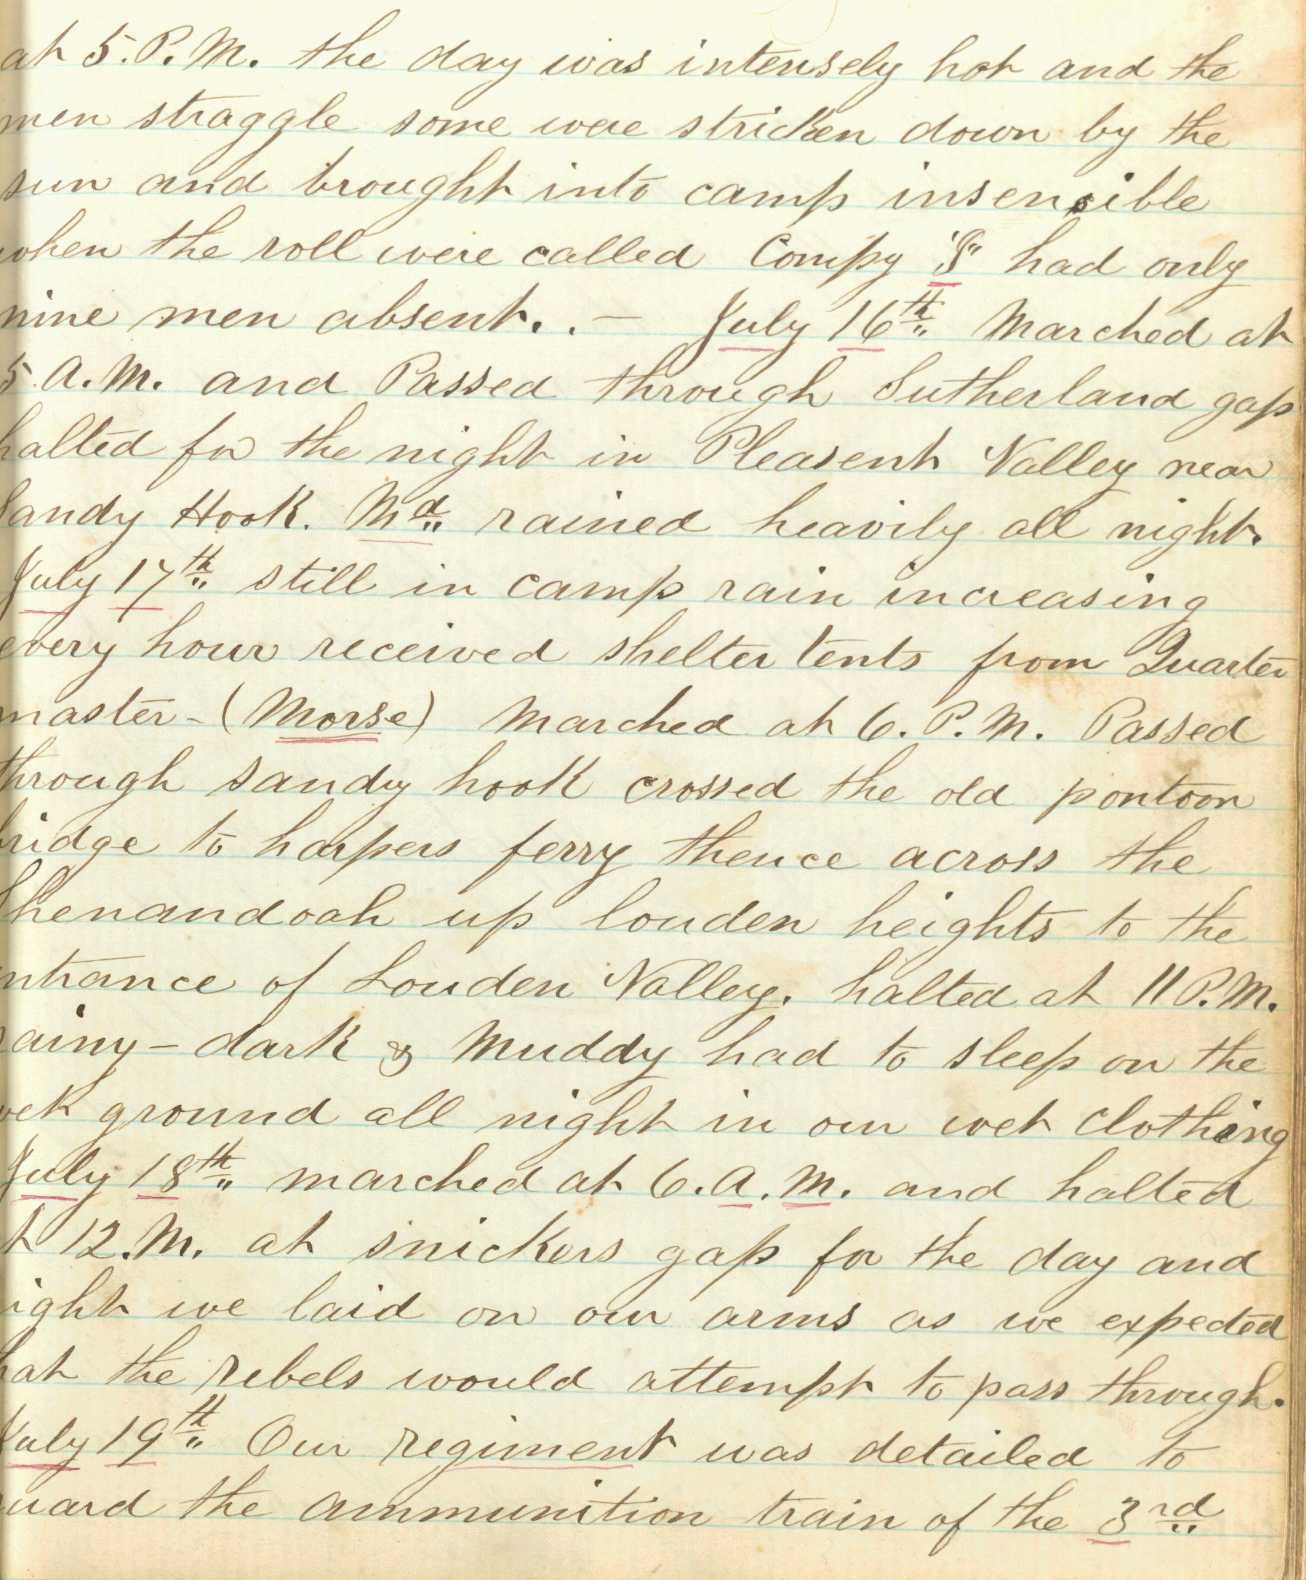 at 5. P. M. the day was intensely hot and the
men straggle some were stricken down by the
sun and brought into camp insensible
when the roll were called Compy had only
nine men absent. . — July 16th Marched at
5. A. M. and Passed through Sutherland gap
halted for the night in Pleasent Valley near
Sandy Hook. Md rained heavily all night.
July 17th still in camp rain increasing
every hour received shelter tents from Quarter
master - (Morse) Marched at 6. P. M. Passed
through sandy hook crossed the old pontoon
bridge to harpers ferry thence across the
Shenandoah up louden heights to the
entrance of Louden Valley. halted at 11 P. M.
rainy - dark & Muddy had to sleep on the
wet ground all night in our wet clothing
July 18th marched at 6. A. M. and halted
at 12. M. at snickers gap for the day and
night we laid on our arms as we expected
that the rebels would attempt to pass through.
July 19th Our regiment was detailed to
guard the ammunition train of the 3rd